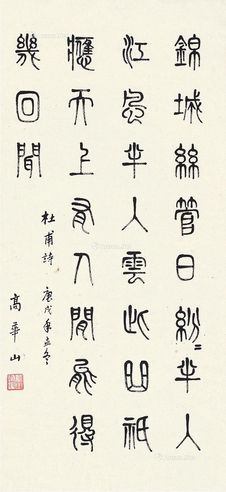 錦城絲管日紛〻半入
江風半入雲此曲祇
應天上有人間能得
幾回聞
杜甫詩 庚戌年立冬
高華山